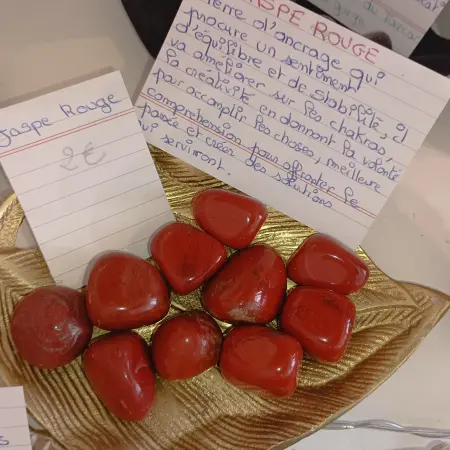 Jaspe Rouge
2€
JASPE ROUGE
Pierre d'ancrage qui
procure un sentiment
d'équilibre et de stabilité, il
va améliorer sur les chakras,
la créativité en donnant la volonté
pour accomplir les choses, meilleure
compréhension pour affronter le
passée et créer des solutions
qui serviront.